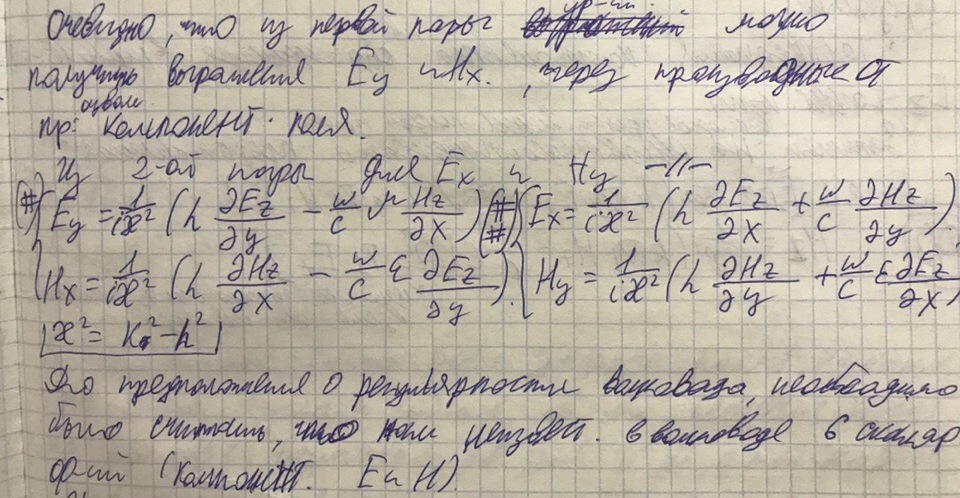 Очевидно, что из первой пары ур-ний можно
получить выражения Ey и Hx, через производные от
прод. компонент поля.
Из 2-ой пары для Ex и Hy -//-
(#) { Ey = 1/(iæ²) (h ∂Ez/∂y - w/c μ Hz/∂x) (##) { Ex = 1/(iæ²) (h ∂Ez/∂x + w/c ∂Hz/∂y)
Hx = 1/(iæ²) (h ∂Hz/∂x - w/c ε ∂Ez/∂y). Hy = 1/(iæ²) (h ∂Hz/∂y + w/c ε ∂Ez/∂x)
æ² = K² - h²
До предположения о регулярности волновода, необходимо
было считать, что нам неизвест. в волноводе 6 скаляр
ф-ций (компонент. E и H)